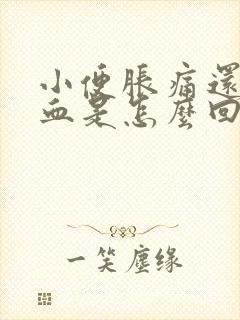 小便脹痛還
血是怎麼回
一笑塵缘